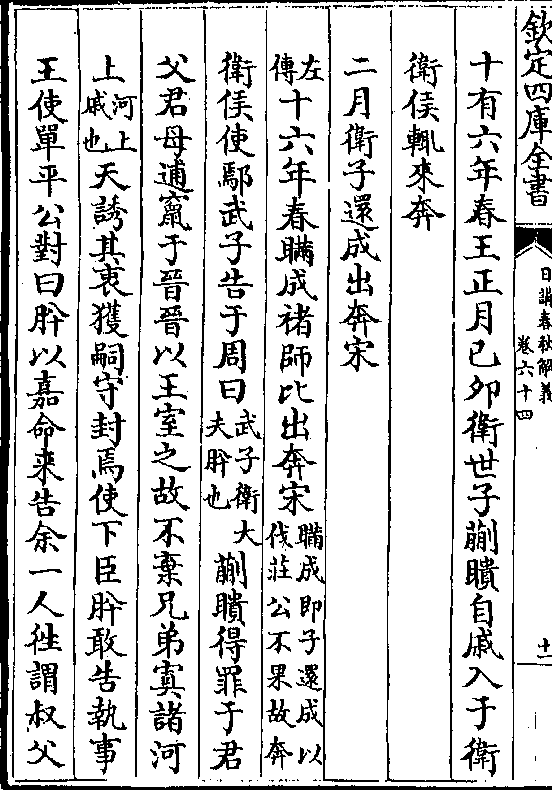 欽定四庫全書
日講春秋解義
卷六十四
十一
十有六年春王正月己卯衛世子蒯聵自戚入于衛
衛侯輒來奔
二月衛子還成出奔宋
左傳十六年春瞞成褚師比出奔宋瞞成即子還成以伐莊公不果故奔
衛侯使鄢武子告于周曰武子衛大夫肸也蒯聵得罪于君
父君母逋竄于晉晉以王室之故不棄兄弟寘諸河
上河上戚也天誘其衷獲嗣守封焉使下臣肸敢告執事
王使單平公對曰肸以嘉命來告余一人徃謂叔父